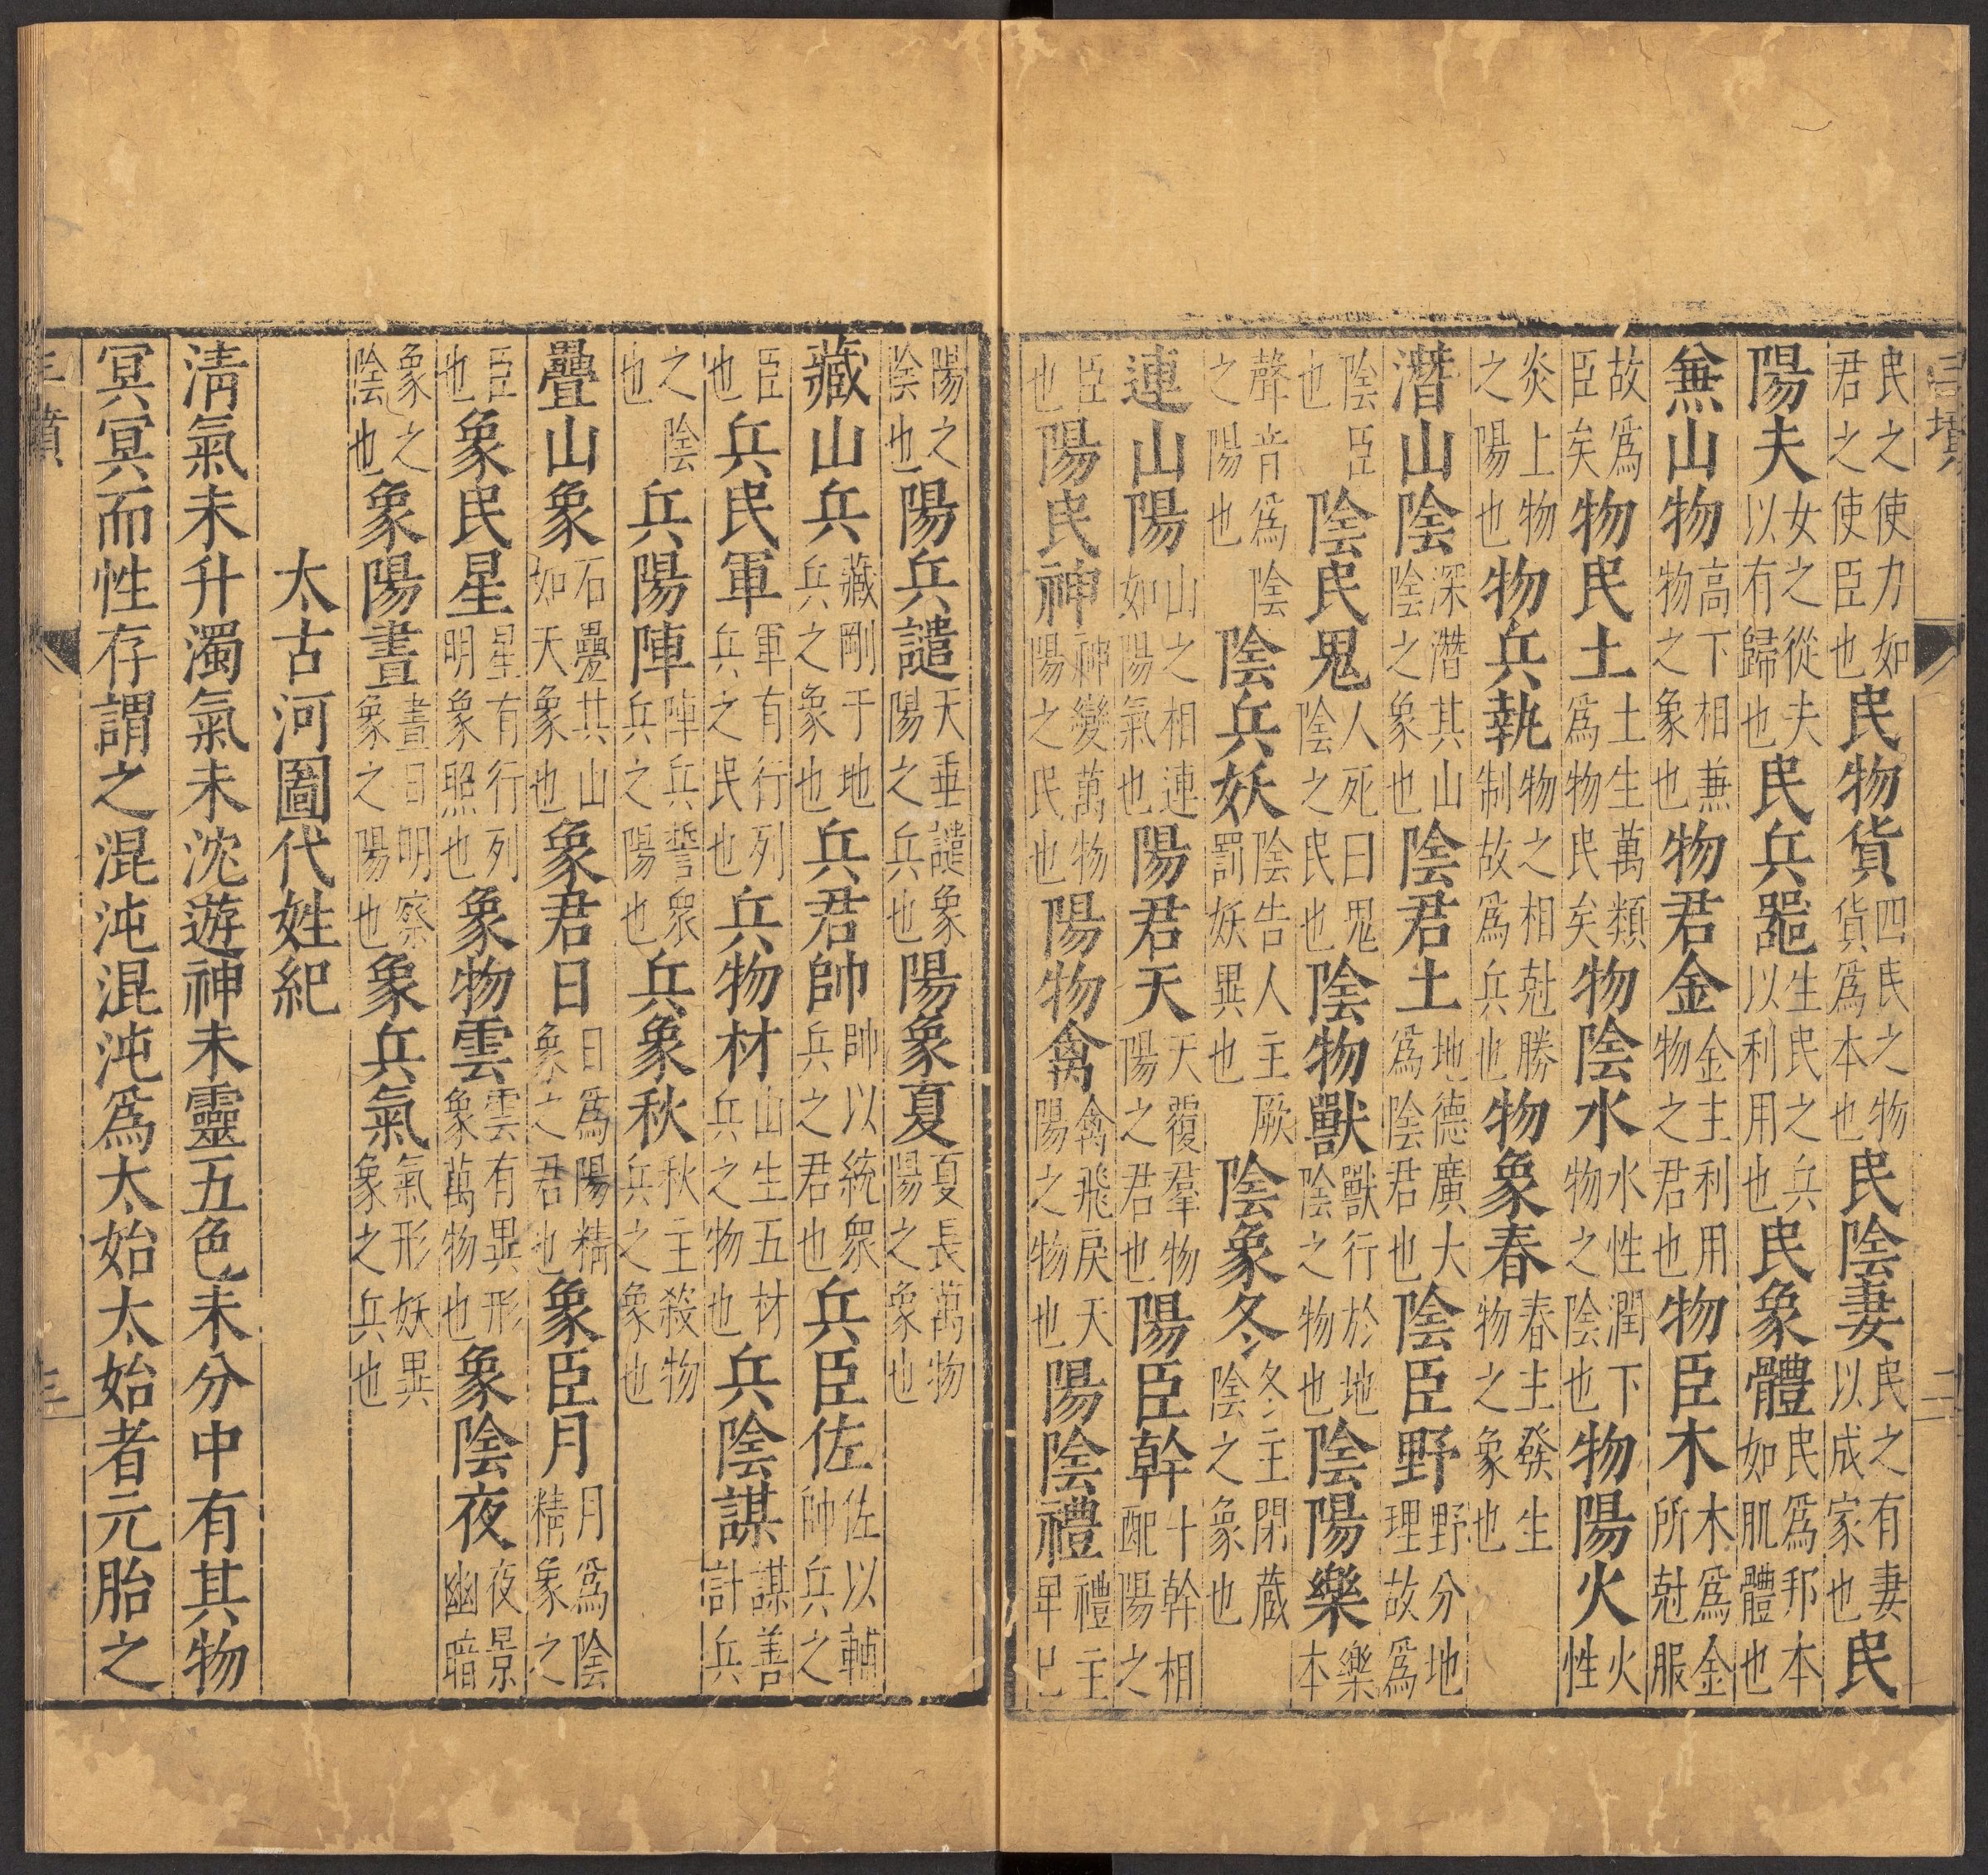 三墳
二
民之使力如君之使臣也民物貨四民之物貨爲本也民陰妻民之有妻以成家也民
陽夫女之從夫以有歸也民兵器生民之兵以利用也民象體民爲邦本如肌體也
兼山物高下相兼物之象也物君金金主利用物之君也物臣木木爲金所尅服
故爲臣矣物民土土生萬類爲物民矣物陰水水性潤下物之陰也物陽火火性
炎上物之陽也物兵執物之相尅勝制故爲兵也物象春春主發生物之象也
潛山陰深潛其山陰之象也陰君土地德廣大爲陰君也陰臣野野分地理故爲
陰臣也陰民鬼人死曰鬼陰之民也陰物獸獸行於地陰之物也陰陽樂樂本
聲音爲陰之陽也陰兵妖陰告人主厥罰妖異也陰象冬冬主閉蔵陰之象也
連山陽山之相連如陽氣也陽君天天覆羣物陽之君也陽臣幹十幹相配陽之
臣也陽民神神變萬物陽之民也陽物禽禽飛戾天陽之物也陽陰禮禮主卑巳
陽之陰也陽兵譴天垂譴象陽之兵也陽象夏夏長萬物陽之象也
藏山兵藏剛于地兵之象也兵君帥帥以統衆兵之君也兵臣佐佐以輔帥兵之
臣也兵民軍軍有行列兵之民也兵物材山生五材兵之物也兵陰謀謀善計兵
之陰也兵陽陣陣兵誓衆兵之陽也兵象秋秋主殺物兵之象也
疊山象石疊其山如天象也象君日日爲陽精象之君也象臣月月爲陰精象之
臣也象民星星有行列明象照也象物雲雲有異形象萬物也象陰夜夜景幽暗
象之陰也象陽晝晝日明察象之陽也象兵氣氣形妖異象之兵也
太古河圖代姓紀
清氣未升濁氣未沈遊神未靈五色未分中有其物
冥冥而性存謂之混沌混沌爲太始太始者元胎之
三墳
三